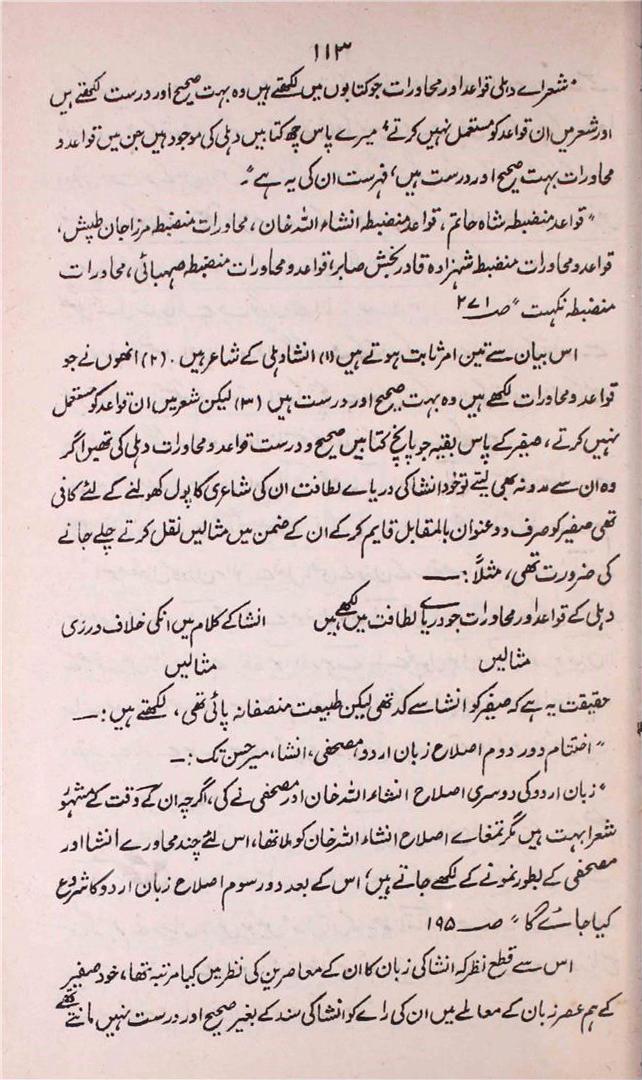 ۱۱۳
"شعراے دہلی قواعد اور محاورات جو کتابوں میں لکھتے ہیں وہ بہت صحیح اور درست لکھتے ہیں
اور شعر میں ان قواعد کو مستعمل نہیں کرتے، میرے پاس چھ کتابیں دہلی کی موجود ہیں جن میں قواعد و
محاورات بہت صحیح اور درست ہیں، فہرست ان کی یہ ہے"۔
"قواعد منضبطہ شاہ حاتم، قواعد منضبطہ انشاء اللہ خان، محاورات منضبطہ مرزا جان طپش،
قواعد و محاورات منضبط شہزادہ قادر بخش صابر، قواعد و محاورات منضبطہ صہبائی، محاورات
منضبطہ نکہت" صــ ۲۷۱
اس بیان سے تین امر ثابت ہوتے ہیں (۱) انشا دہلی کے شاعر ہیں۔ (۲) انھوں نے جو
قواعد و محاورات لکھے ہیں وہ بہت صحیح اور درست ہیں (۳) لیکن شعر میں ان قواعد کو مستعمل
نہیں کرتے، صفیر کے پاس بقیہ جو پانچ کتابیں صحیح و درست قواعد و محاورات دہلی کی تھیں اگر
وہ ان سے مدد نہ بھی لیتے تو خود انشا کی دریاے لطافت ان کی شاعری کا پول کھولنے کے لئے کافی
تھی صفیر کو صرف دو عنوان بالمقابل قایم کر کے ان کے ضمن میں مثالیں نقل کرتے چلے جانے
کی ضرورت تھی، مثلاً:ــ
دہلی کے قواعد اور محاورات جو دریاے لطافت میں لکھے ہیں انشا کے کلام میں انکی خلاف ورزی
مثالیں مثالیں
حقیقت یہ ہے کہ صفیر کو انشا سے کد تھی لیکن طبیعت منصفانہ پائی تھی، لکھتے ہیں:ــ
"اختتام دور دوم اصلاع زبان اردو، مصحفی، انشا، میر حسن تک:ــ
"زبان اردو کی دوسری اصلاح انشاء اللہ خان اور مصحفی نے کی، اگرچہ ان کے وقت کے مشہور
شعرا بہت ہیں مگر تمغاے اصلاح انشاء اللہ خان کو ملا تھا، اس لئے چند محاورے انشا اور
مصحفی کے بطور نمونے کے لکھے جاتے ہیں، اس کے بعد دور سوم اصلاع زبان اردو کا شروع
کیا جائے گا" صــ ۱۹۵
اس سے قطع نظر کہ انشا کی زبان کا ان کے معاصرین کی نظر میں کیا مرتبہ تھا، خود صفیر
کے ہم عصر زبان کے معاملے میں ان کی راے کو انشا کی سند کے بغیر صحیح اور درست نہیں مانتے تھے